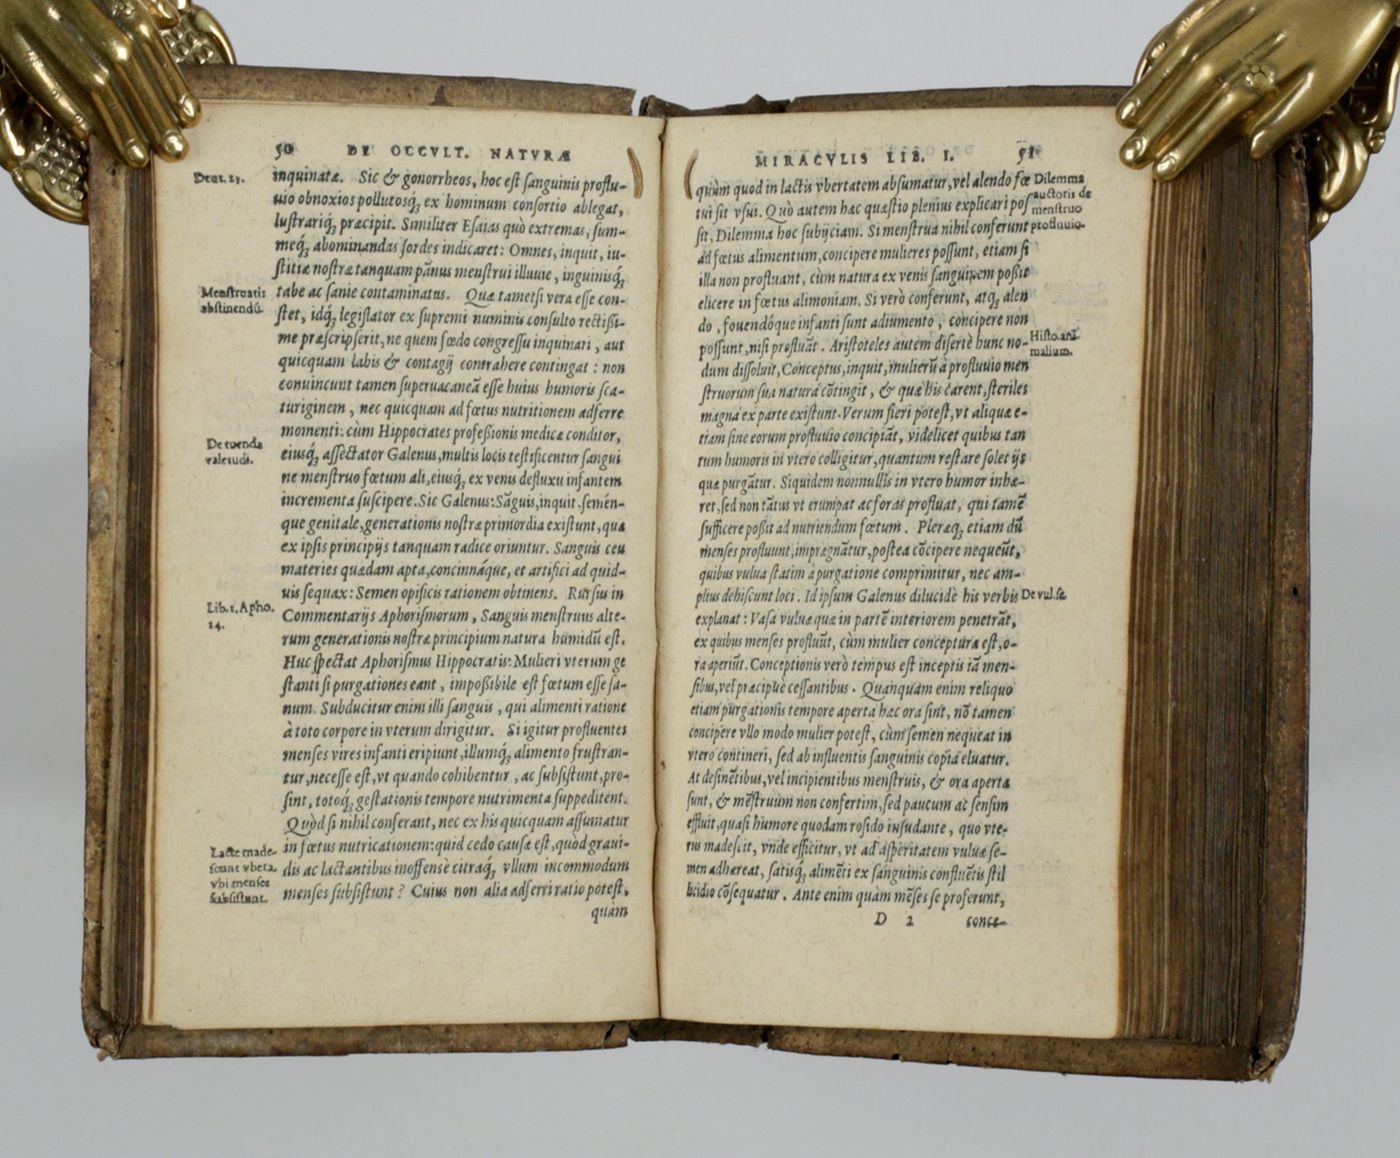 50 DE OCCVLT. NATVRÆ
Deut. 23.
inquinatæ. Sic & gonorrheos, hoc est sanguinis proflu-
uio obnoxios pollutosq́; ex hominum consortio ablegat,
lustrariq́; præcipit. Similiter Esaias quò extremas, sum-
meq́; abominandas sordes indicaret: Omnes, inquit, iu-
stitiæ nostræ tanquam pãnus menstrui illuuie, inguinisq́;
Menstruatis
abstinendũ.
tabe ac sanie contaminatus. Quæ tametsi vera esse con-
stet, idq́; legislator ex supremi numinis consulto rectißi-
me præscripserit, ne quem fœdo congressu inquinari, aut
quicquam labis & contagij contrahere contingat: non
conuincunt tamen superuacaneã esse huius humoris sca-
turiginem, nec quicquam ad fœtus nutritionem adferre
momenti: cùm Hippocrates profeßionis medicæ conditor,
De tuenda
valetudi.
eiusq́; assectator Galenus, multis locis testificentur sangui
ne menstruo fœtum ali, eiusq́; ex venis defluxu infantem
incrementa suscipere. Sic Galenus: Sãguis, inquit, semén-
que genitale, generationis nostræ primordia existunt, quæ
ex ipsis principijs tanquam radice oriuntur. Sanguis ceu
materies quædam apta, concinnáque, et artifici ad quid-
uis sequax: Semen opificis rationem obtinens. Rursus in
Lib. 1. Apho.
14.
Commentarijs Aphorismorum, Sanguis menstruus alte-
rum generationis nostræ principium natura humidũ est.
Huc spectat Aphorismus Hippocratis: Mulieri vterum ge
stanti si purgationes eant, impoßibile est fœtum esse sa-
num. Subducitur enim illi sanguis, qui alimenti ratione
à toto corpore in vterum dirigitur. Si igitur profluentes
menses vires infanti eripiunt, illumq́; alimento frustran-
tur, necesse est, vt quando cohibentur, ac subsistunt, pro-
sint, totoq́; gestationis tempore nutrimenta suppeditent.
Quòd si nihil conferant, nec ex his quicquam assumatur
Lacte made-
scunt vbera,
vbi menses
subsistunt.
in fœtus nutricationem: quid cedo causæ est, quòd graui-
dis ac lactantibus inoffensè citraq́; vllum incommodum
menses subsistunt? Cuius non alia adferri ratio potest,
quàm
MIRACVLIS LIB. I. 51
Dilemma
auctoris de
menstruo
profluuio.
quùm quod in lactis vbertatem absumatur, vel alendo fœ
tui sit vsui. Quò autem hæc quæstio plenius explicari pos
sit, Dilemma hoc subijciam. Si menstrua nihil conferunt
ad fœtus alimentum, concipere mulieres possunt, etiam si
illa non profluant, cùm natura ex venis sanguinem poßit
elicere in fœtus alimoniam. Si verò conferunt, atq́; alen
do, fouendóque infanti sunt adiumento, concipere non
Histo. ani
malium.
possunt, nisi profluãt. Aristoteles autem disertè hunc no-
dum dissoluit, Conceptus, inquit, mulierũ à profluuio men
struorum sua natura cõtingit, & quæ his carent, steriles
magna ex parte existunt. Verum fieri potest, vt aliquæ e-
tiam sine eorum profluuio concipiãt, videlicet quibus tan
tum humoris in vtero colligitur, quantum restare solet ijs
quæ purgãtur. Siquidem nonnullis in vtero humor inhæ-
ret, sed non tãtus vt erumpat ac foras profluat, qui tamẽ
sufficere poßit ad nutriendum fœtum. Pleræq́; etiam dũ
menses profluunt, imprægnãtur, postea cõcipere nequeũt,
quibus vulua statim à purgatione comprimitur, nec am-
plius dehiscunt loci. Id ipsum Galenus dilucidè his verbis
De vul. se.
explanat: Vasa vuluæ quæ in partẽ interiorem penetrãt,
ex quibus menses profluũt, cùm mulier conceptura est, o-
ra aperiũt. Conceptionis verò tempus est inceptis iã men-
sibus, vel præcipuè cessantibus. Quanquam enim reliquo
etiam purgationis tempore aperta hæc ora sint, nõ tamen
concipere vllo modo mulier potest, cùm semen nequeat in
vtero contineri, sed ab influentis sanguinis copia eluatur.
At desinẽtibus, vel incipientibus menstruis, & ora aperta
sunt, & mẽstruùm non confertim, sed paucum ac sensim
effluit, quasi humore quodam rosido insudante, quo vte-
rus madescit, vnde efficitur, vt ad asperitatem vuluæ se-
men adhæreat, satisq́; alimẽti ex sanguinis confluẽtis stil
licidio cõsequatur. Ante enim quàm mẽses se proferunt,
D 2 conce-